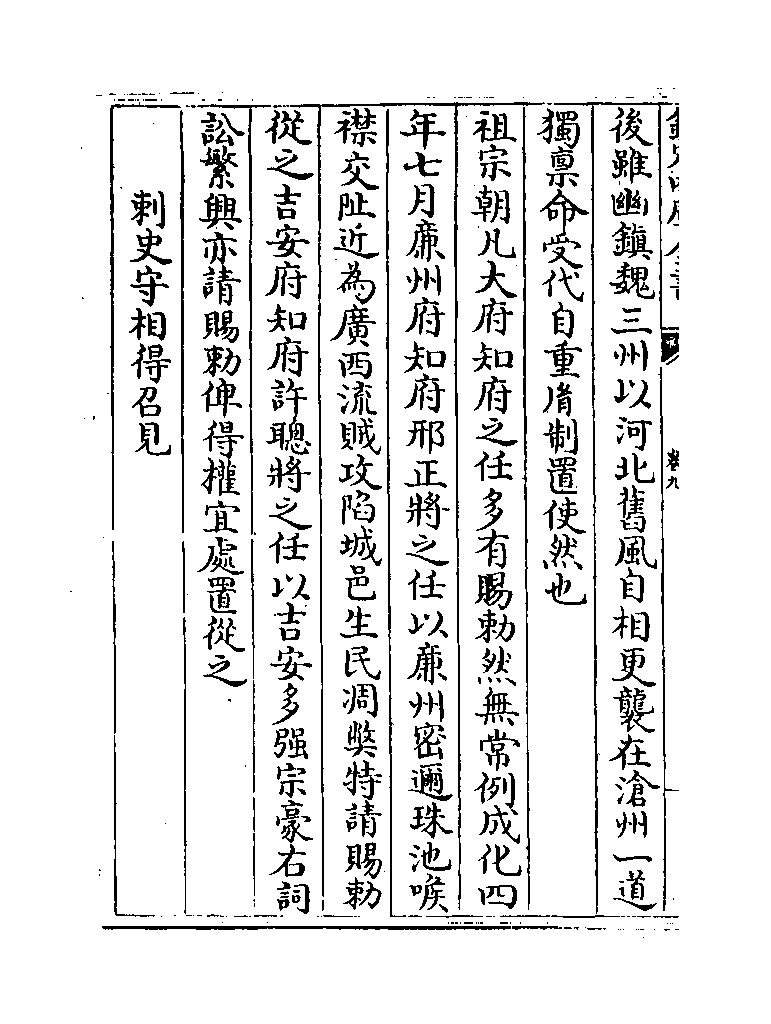 後雖幽鎮魏三州以河北舊風自相更襲在滄州一道
獨禀命受代自重𦙍制置使然也
祖宗朝凡大府知府之任多有賜勅然無常例成化四
年七月亷州府知府邢正將之任以亷州密邇珠池喉
襟交阯近為廣西流賊攻陷城邑生民凋獘特請賜勅
從之吉安府知府許聰將之任以吉安多强宗豪右詞
訟繁興亦請賜勅俾得權宜處置從之
刺史守相得召見